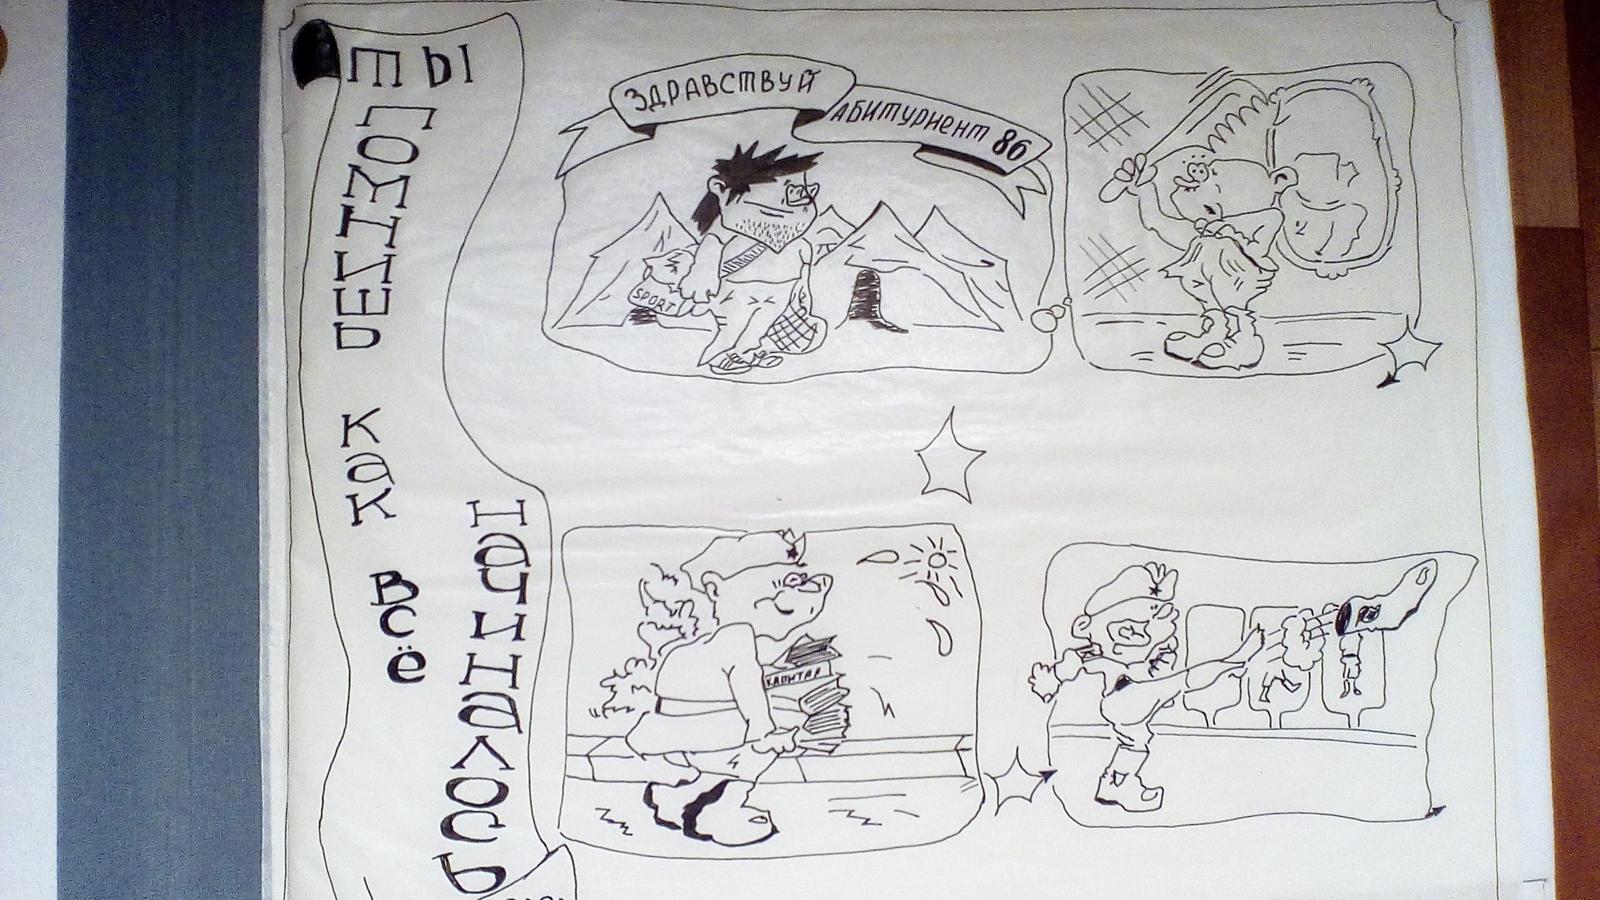 ТЫ
ПОМНИШЬ
КАК
ВСЁ
НАЧИНАЛОСЬ
ЗДРАВСТВУЙ
АБИТУРИЕНТ 86
SPORT
КАПИТАЛ